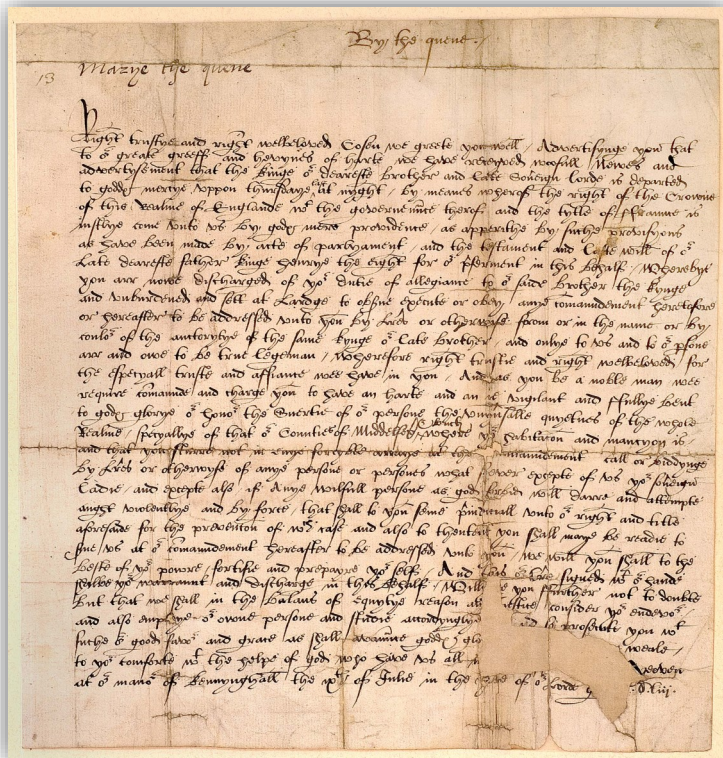 By the quene.
13
Marye the quene
Right trustye and right welbeloved Cosen we greete you well / Advertisinge you that
to oʳ greate greeff and hevynes of harte we have receyved woofull Newes and
advertysement that the Kinge oʳ deareste Brother and Late Soveign Lorde is departed
to godds mercye uppon thursdaye last at nyght / by meanes wherof the right of the Crowne
of this Realme of Englande wᵗ the governaunce therof and the tytle of Fraunce is
iustlye come unto us by godds mere providence / as apperithe by suche provisyons
as have been made by acte of parlyament / and the testament and Laste will of oʳ
Late deareste father Kinge henrye the eight for oʳ pferment in this behalf / Wherebye
you arr nowe discharged of yoʳ dutie of allegiance to oʳ saide Brother the Kynge
and unburdened and sett at Lardge to obsve execute or obey / anye comaundement heretofore
or hereafter to be addressed unto you by Lres or otherwyse from or in the name or by
coulor of the auctorytye of the same Kynge oʳ Late Brother / and onlye to us and to oʳ psone
arr and owe to be true Liegeman / Wherefore right trustie and right welbeloved for
the especyall truste and affiance wee have in you / And as you be a noble man wee
require comaunde and charge you to have an harte and an vigilant and fullye bent
to godds glorye oʳ honoʳ the suertie of oʳ persone the universalle quyetnes of the whole
Realme / specyallye of that oʳ Counties of Middelsex where yoʳ habitacon and mancyon is
and that you sturre not in anye forcyble arraye at the comaundement call or biddynge
by Lres or otherwyse of anye persone or persones what soever excepte of us yoʳ soveign
Ladye / and excepte also if Anye wilfull persone as god forbid will darre and attempte
aught violentlye and by force / that shall to you seme preiudiciall unto oʳ right and title
aforesaide for the prevention of wᶜʰ case and also to thentent you shall maye be readie to
sve us at oʳ comaundement hereafter to be addressed unto you / we will you shall to the
beste of yoʳ powre / fortifie and prepayre yoʳ self / And this oʳ Lre signed wᵗ oʳ hande
shalbe yoʳ warraunt and discharge in this behalf / Willing you further not to doubte
but that we shall in the balans of equytye reason and iustice / consider yoʳ endevoʳ
and also employe oʳ owne persone and studie accordynglye and to prosecute you wᵗ
suche oʳ good favoʳ and grace as shall avaunce godds glo weale
to yoʳ comforte wᵗ the helpe of god who have us all yeoven
at oʳ manoʳ of Kennynghall the ixᵗʰ of Julie in the yere of oʳ Lorde .liij.